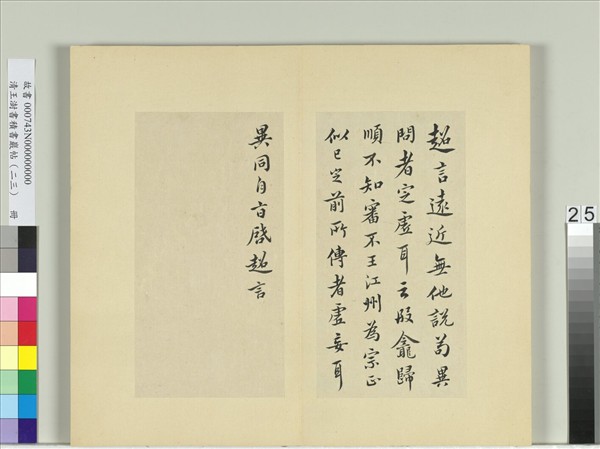 超言遠近無他說苟異
問者定虛耳云殷龕歸
順不知審不王江州為宗正
似已定前所傳者虛妄耳
異同自當啟超言
故書 000743N000000000
清王澍書積書巖帖（二三） 冊
25